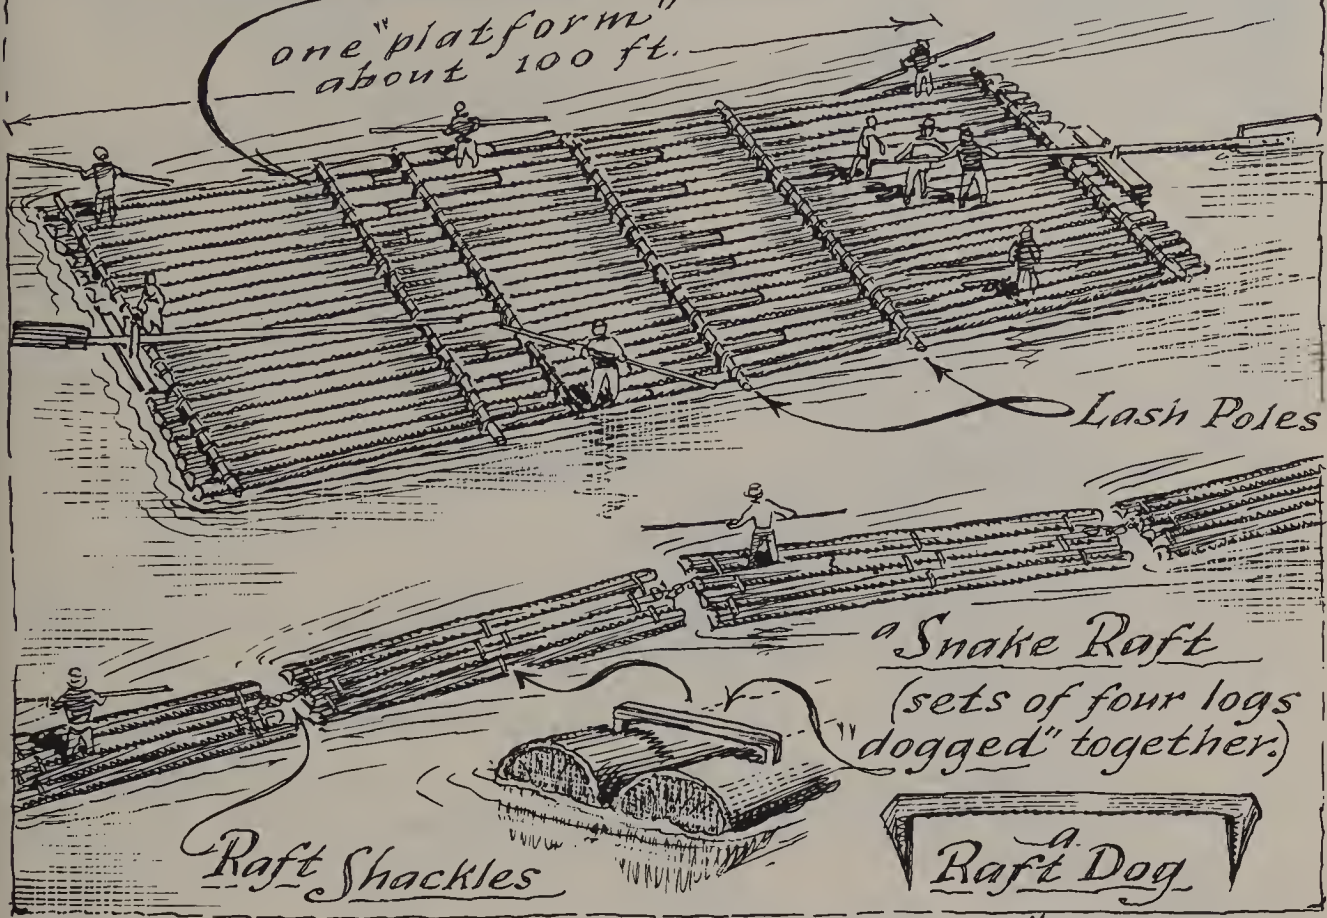 one "platform"
about 100 ft.
Lash Poles
a Snake Raft
(sets of four logs
"dogged" together.)
Raft Shackles
a
Raft Dog